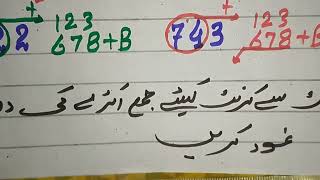 2 123
678+B
743 123
678+B
سے کرنٹ کیلئے جمع انڑے کی
غور کریں